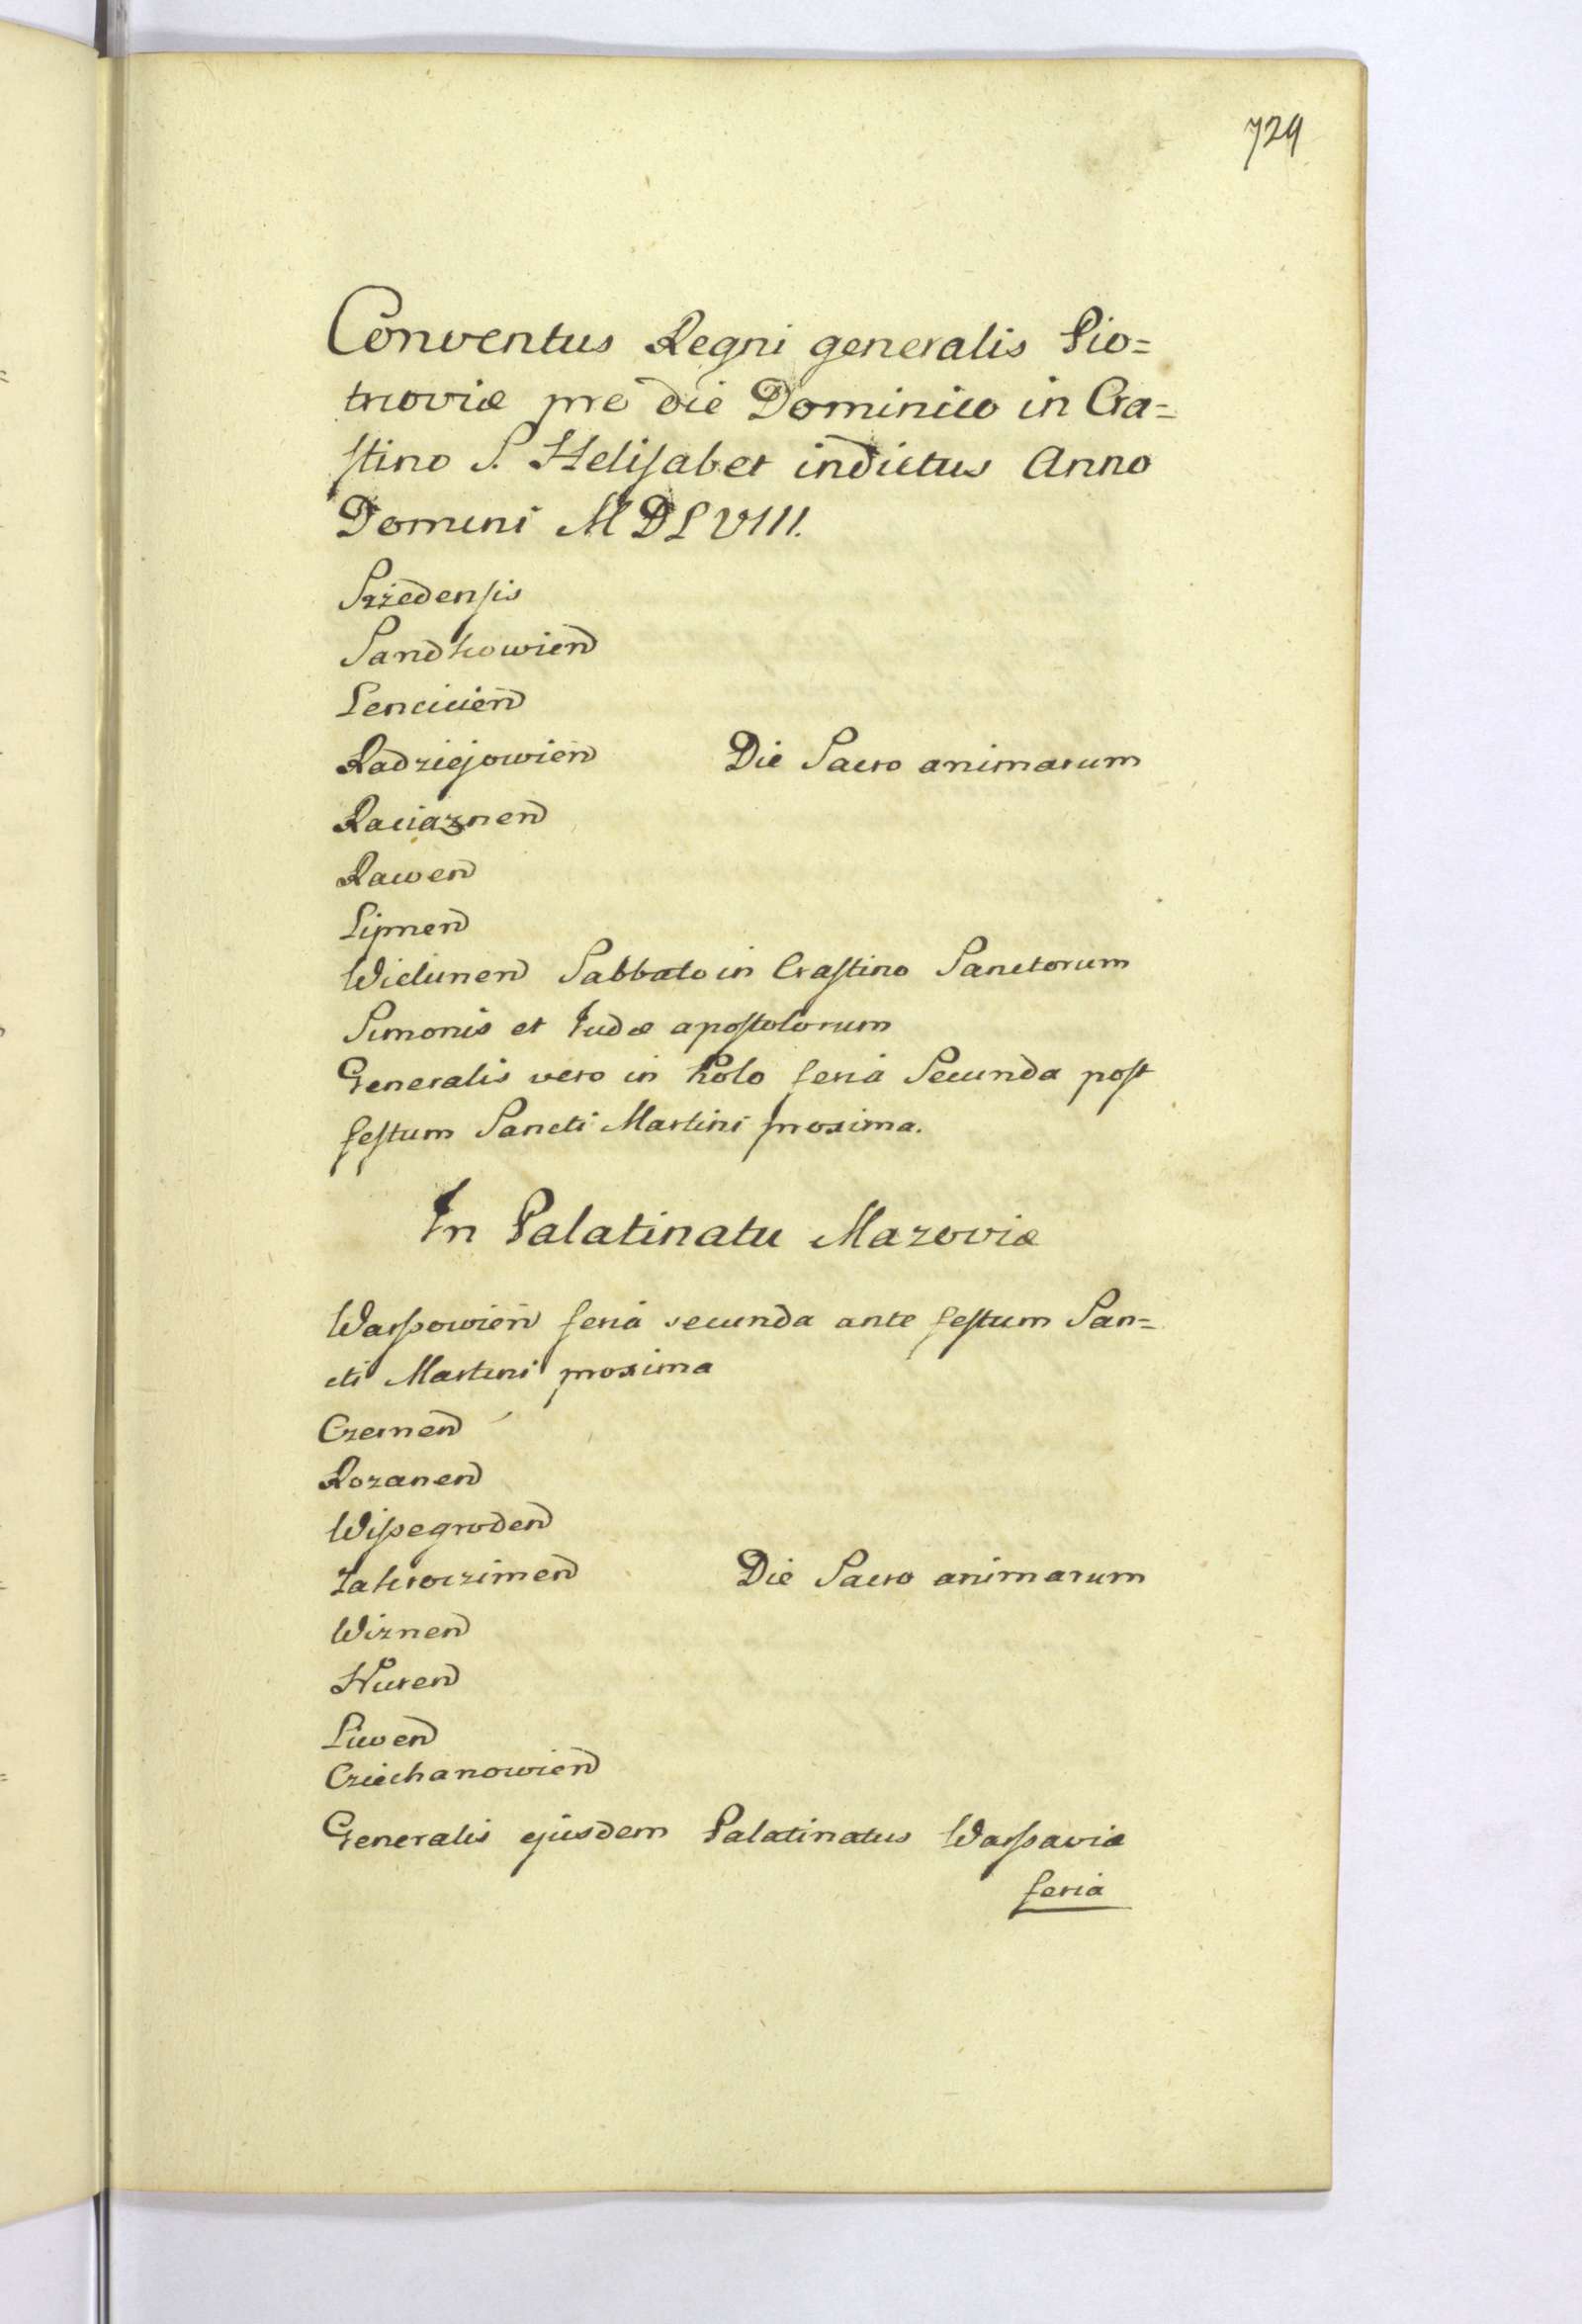 729
Conventus Regni generalis Pio=
trcoviæ pre die Dominico in Cra=
stino S. Helisabet indictus Anno
Domini MDLVIII.
Srzedensis
Sandkowien̄
Lencicien̄
Radziejowien̄ Die Sacro animarum
Raciaznen̄
Rawen̄
Lipnen̄
Wielunen̄ Sabbato in Crastino Sanctorum
Simonis et Iudæ apostolorum
Generalis vero in Kolo feria Secunda post
festum Sancti Martini proxima.
In Palatinatu Mazoviæ
Warssowien̄ feria secunda ante festum San=
cti Martini proxima
Czernen̄
Rozanen̄
Wissegroden̄
Zakroczimen̄ Die Sacro animarum
Wiznen̄
Nuren̄
Liwen̄
Cziechanowien̄
Generalis ejusdem Palatinatus Warssaviæ
feria